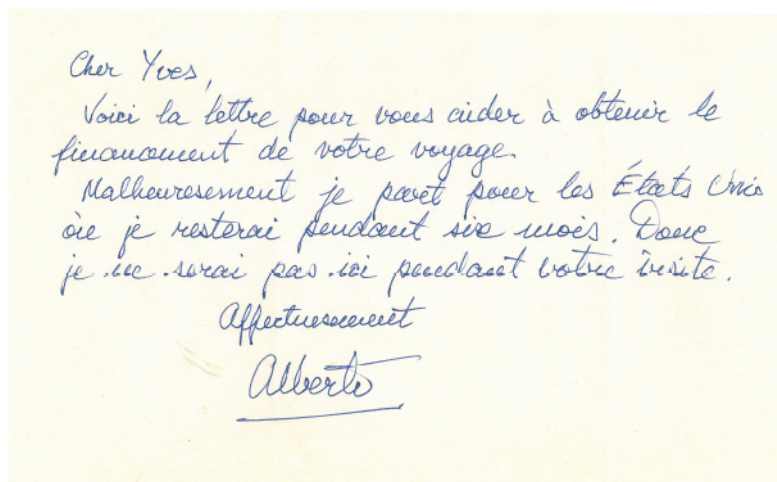 Cher Yves,
Voici la lettre pour vous aider à obtenir le
financement de votre voyage.
Malheuresement je part pour les États Unis
òu je resterai pendant six mois. Donc
je ne serai pas ici pendant votre visite.
Affectuesement
Alberto